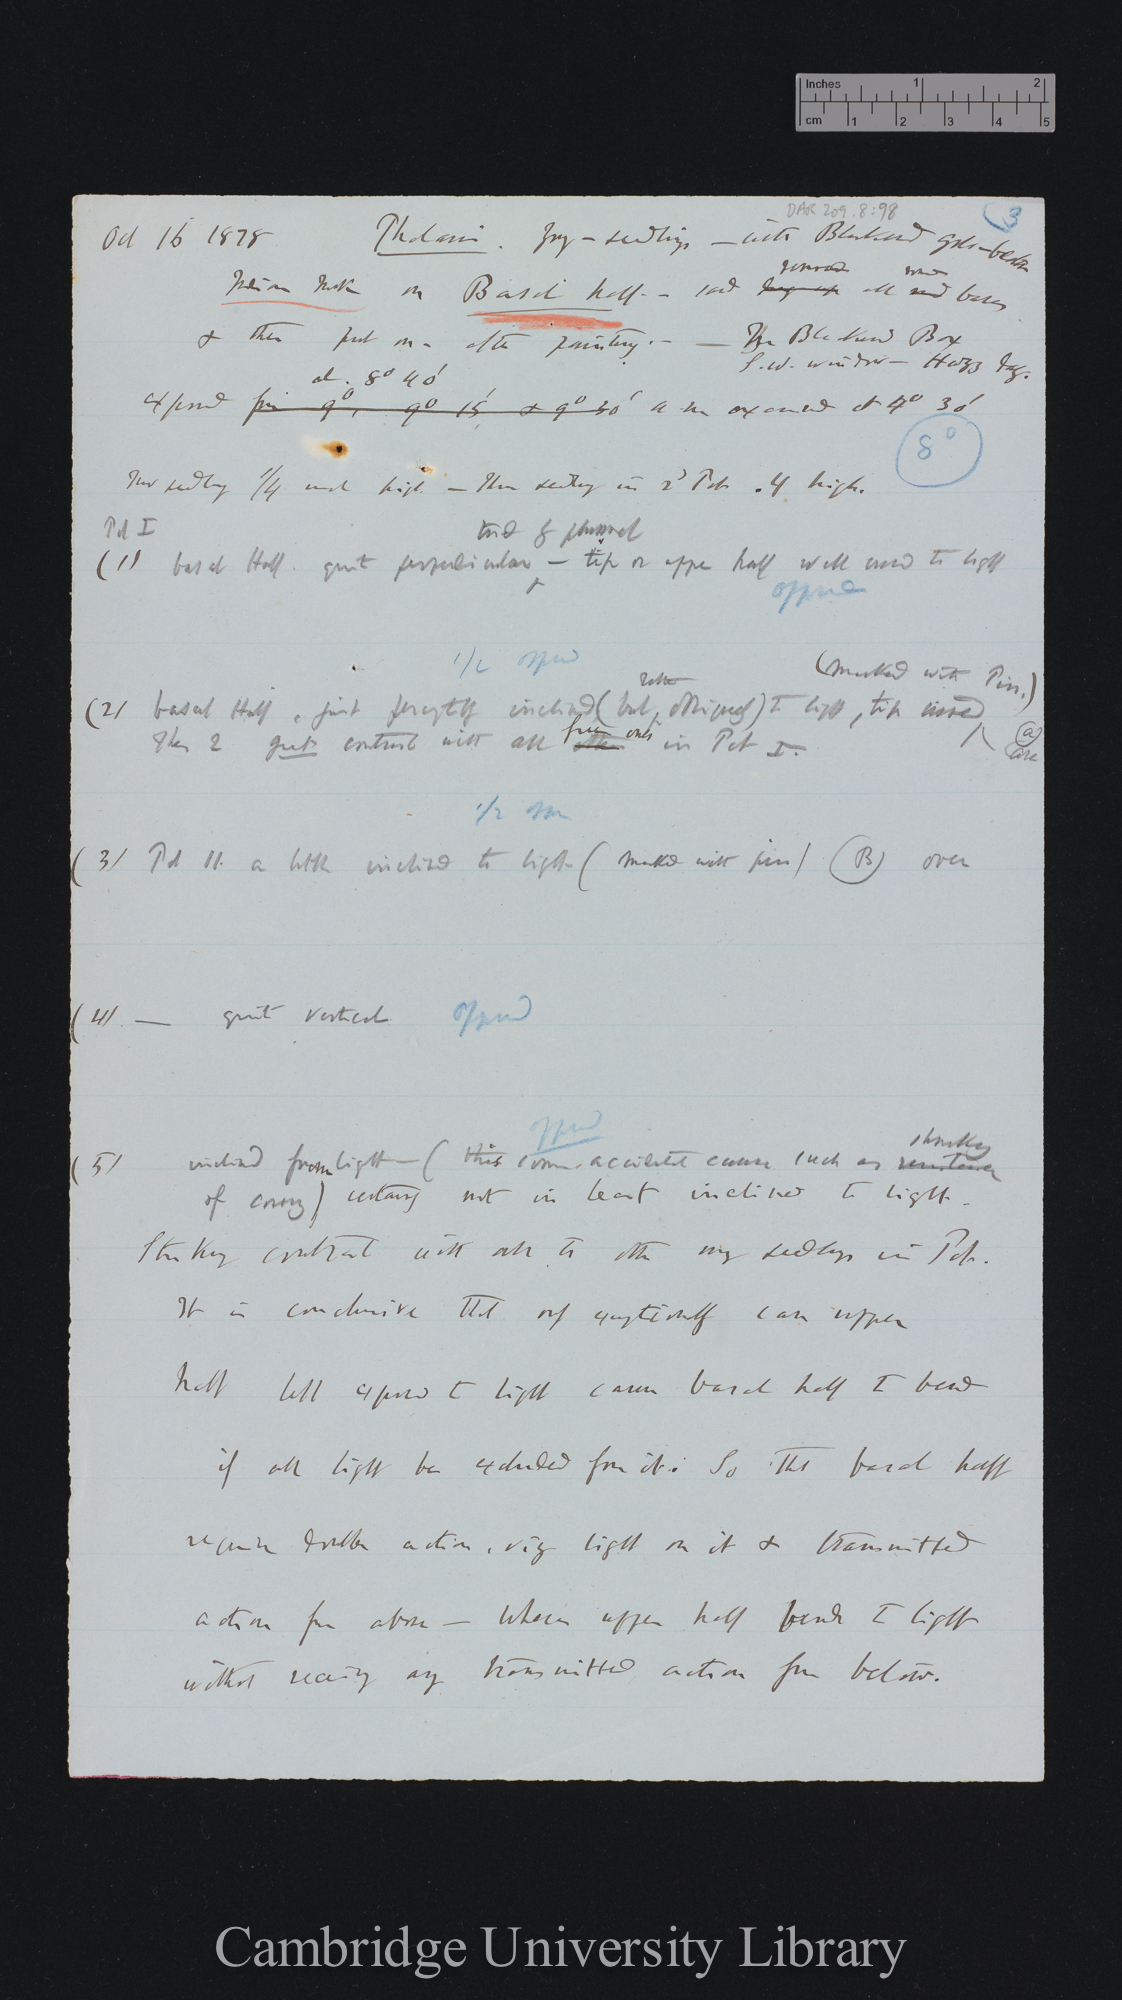 Inches 1 2
cm 1 2 3 4 5
DAR 209.8:98
3
Oct 16 1878 Phalaris. young-seedlings — with Blackened
Indian Ink on Basal half — sand removed all round bases
& then put on after painting. — The Blackened Box
S.W. window — Hazy day.
at. 8° 40'
exposed from 9°, 9° 15', & 9° 30' & examined at 4° 30'
8°
seedling 1/4 inch high — seedling in 2d Pot .4 high.
Pot I
(1) basal Half. quite perpendicular — tip or upper half well curved to light
opposed
1/2 opposed
(marked with Pin.)
rather
(2) basal Half, inclined (but, obliquely) to light, tip curved
(a)
free ones
This 2 great contrast with all other in Pot I.
1/2 opp
(3) Pot II. a little inclined to light (marked with pin) (B) over
(4) — quite vertical opposed
opposed
shrinking
(5) inclined from light — (this from accidental cause such as
of ) certainly not in least inclined to light.
Striking contrast with all the other my seedlings in Pots.
It is conclusive that only exceptionally can upper
half left exposed to light cause basal half to bend
if all light be excluded from it: So that basal half
requires double action, viz light on it & transmitted
action from above — Whereas upper half bends to light
without receiving any transmitted action from below.
Cambridge University Library